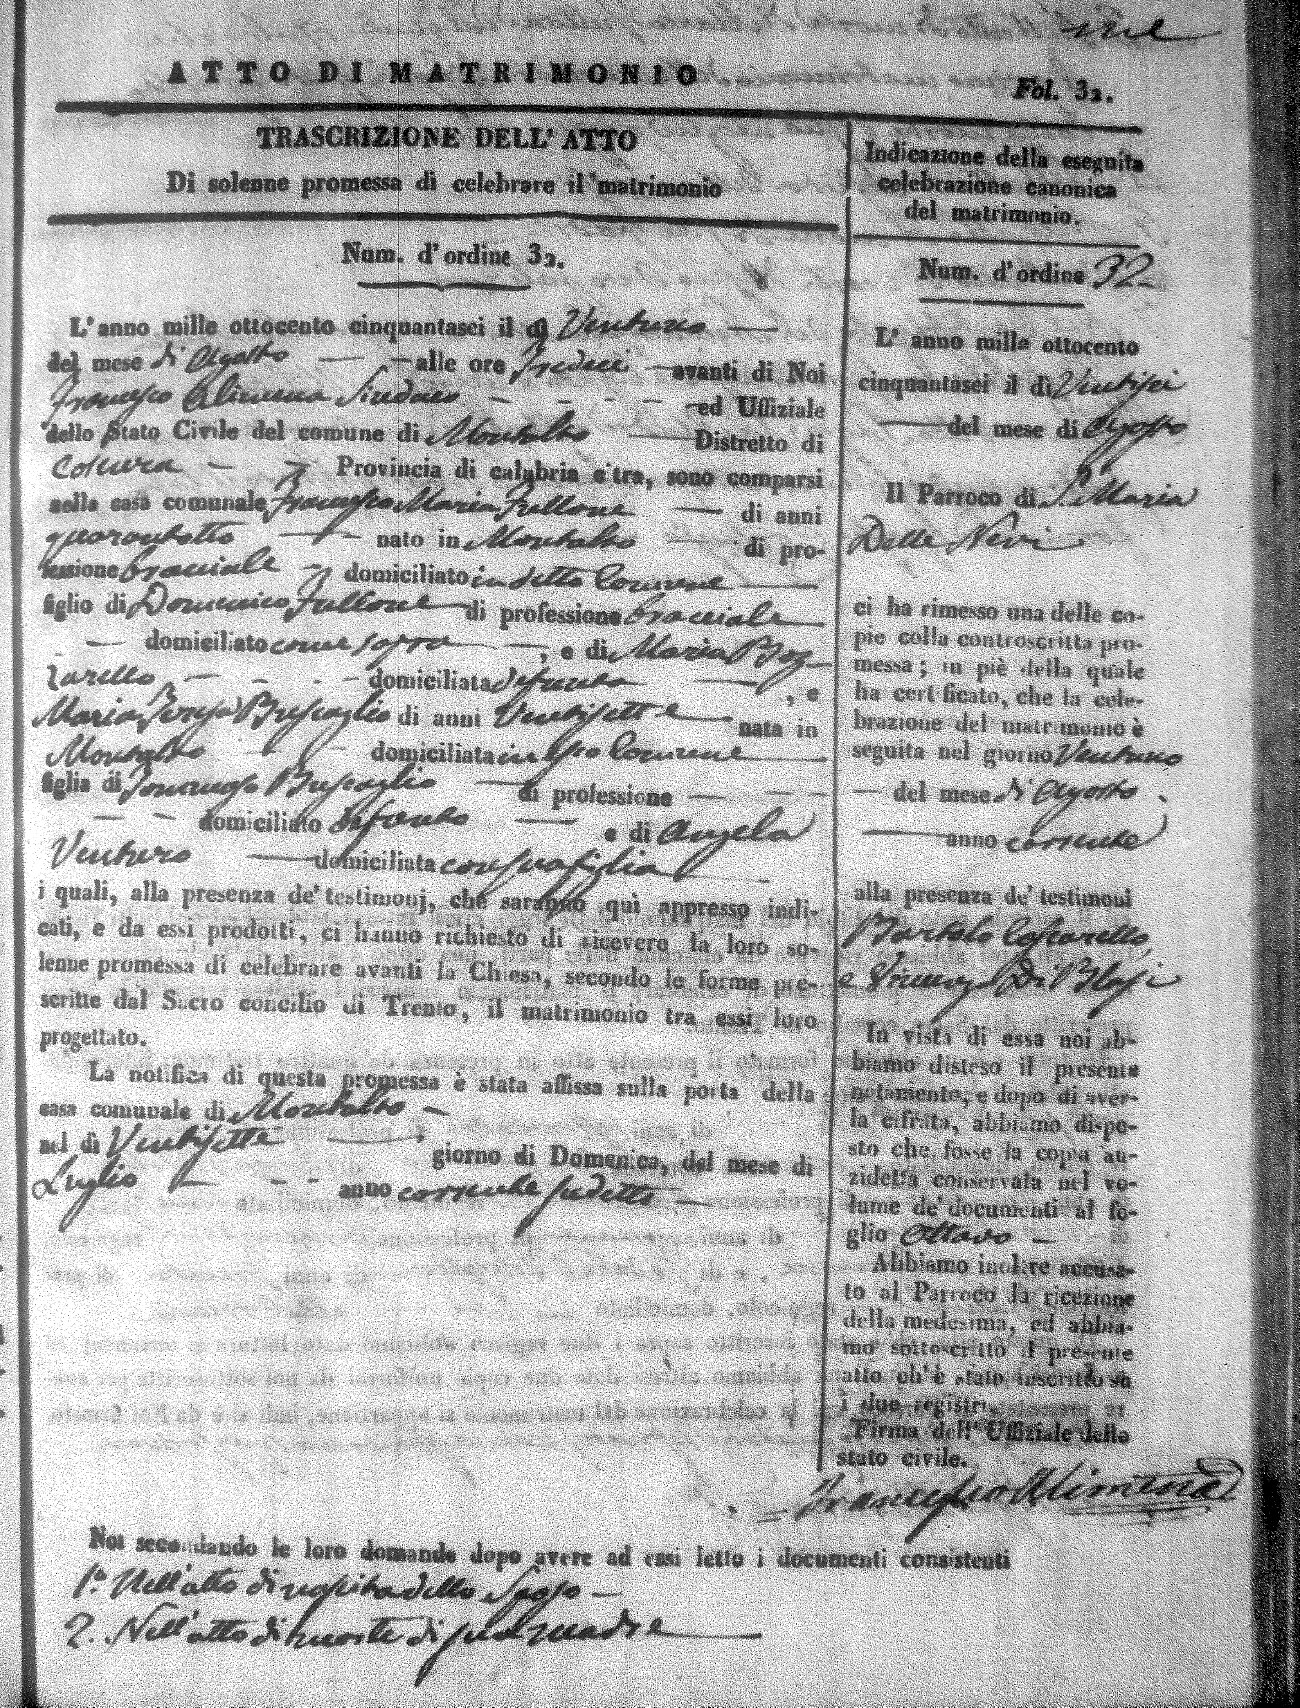 ATTO DI MATRIMONIO
Fol. 32.
TRASCRIZIONE DELL' ATTO
Di solenne promessa di celebrare il matrimonio
Num. d' ordine 32.
L' anno mille ottocento cinquantasei il dì Ventuno
del mese di Agosto alle ore Tredici avanti di Noi
Francesco Alimena Sindaco ed Uffiziale
dello Stato Civile del comune di Montalto Distretto di
Cosenza Provincia di calabria citra, sono comparsi
nella casa comunale Francesco Maria Fullone di anni
quarantotto nato in Montalto di pro-
fessione bracciale domiciliato in detto Comune
figlio di Domenico Fullone di professione bracciale
domiciliato come sopra, e di Maria
domiciliata defunta, e
Maria Teresa Bruscaglio di anni Ventisette nata in
Montalto domiciliata in esso Comune
figlia di Tommaso Bruscaglio di professione
domiciliato defonto e di Angela
Ventura domiciliata con sua figlia
i quali, alla presenza de' testimonj, che saranno quì appresso indi-
cati, e da essi prodotti, ci hanno richiesto di ricevere la loro so-
lenne promessa di celebrare avanti la Chiesa, secondo le forme pre-
scritte dal Sacro concilio di Trento, il matrimonio tra essi loro
progettato.
La notifica di questa promessa è stata affissa sulla porta della
casa comunale di Montalto
nel dì Ventisette giorno di Domenica, del mese di
Luglio anno corrente sudetto
Indicazione della eseguita
celebrazione canonica
del matrimonio.
Num. d' ordine 32
L' anno mille ottocento
cinquantasei il dì Ventisei
del mese di Agosto
Il Parroco di S. Maria
Delle Nevi
ci ha rimesso una delle co-
pie colla controscritta pro-
messa; in piè della quale
ha certificato, che la cele-
brazione del matrimonio è
seguita nel giorno Ventuno
del mese di Agosto
anno corrente
alla presenza de' testimoni
Bartolo
e Di Blasi
In vista di essa noi ab-
biamo disteso il presente
notamento, e dopo di aver-
la cifrata, abbiamo dispo-
sto che fosse la copia an-
zidetta conservata nel vo-
lume de' documenti al fo-
glio ottavo
Abbiamo inoltre accusa-
to al Parroco la ricezione
della medesima, ed abbia-
mo sottoscritto il presente
atto ch' è stato inscritto su
i due registri.
Firma dell' Uffiziale dello
stato civile.
Francesco Alimena
Noi secondando le loro domande dopo avere ad essi letto i documenti consistenti
1.° Nell' atto di nascita dello Sposo
2. Nell' atto di morte di sua madre